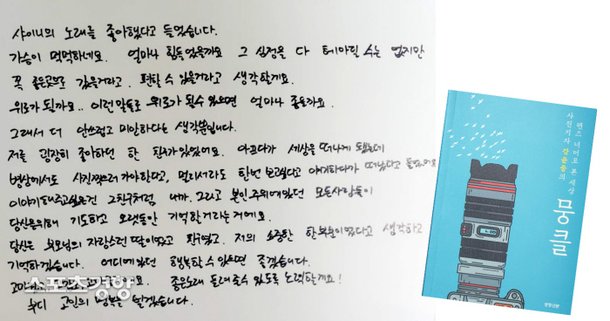 샤이니의 노래를 좋아했다고 들었습니다.
가슴이 먹먹하네요. 얼마나 힘드셨을까요 그 심정을 다 헤아릴 수는 없지만
꼭 좋은곳으로 갔을거라고. 편할 수 있을거라고 생각할게요.
위로가 될까요.. 이런 말들로 위로가 될수 있으면 얼마나 좋을까요.
그래서 더 안쓰럽고 미안하다는 생각뿐입니다.
저를 굉장히 좋아하던 한 친구가 있었어요. 아프다가 세상을 떠나게 됐는데
병상에서도 사진찍으러 가야한다고, 멀리서라도 한번 보고싶다고 얘기하다가 떠났다고 들었어요
이야기해주고싶은건 그친구처럼 그리고 본인주위에있던 모든사람들이
당신을위해 기도하고 오랫동안 기억할거라는거에요.
당신은 부모님의 자랑스런 딸이였고 친구였고. 저의 소중한 한부분이였다고 생각하고
기억하겠습니다. 어디에있던 행복할 수 있으면 좋겠습니다.
좋은노래 들려줄수 있도록 노력할게요!
부디 고인의 명복을 빌겠습니다.
스포츠경향
렌즈 너머로 본 세상
사진기자
뭉클
경향신문